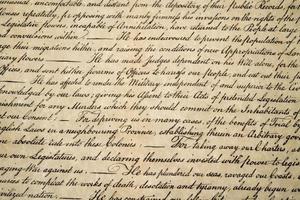 unusual, uncomfortable, and distant from the depository of their Public Records, for
ouses repeatedly, for opposing with manly firmness his invasions on the rights of the
islative powers, incapable of Annihilation, have returned to the People at large
nd convulsions within. — He has endeavoured to prevent the population of
age their migrations hither, and raising the conditions of new Appropriations of La
powers. — He has made Judges dependent on his Will alone, for the
Offices, and sent hither swarms of Officers to harrass our people, and eat out their
— He has affected to render the Military independent of and superior to the Civ
knowledged by our laws; giving his Assent to their Acts of pretended Legislation:
nishment for any Murders which they should commit on the Inhabitants of
out our Consent: — For depriving us in many cases, of the benefits of Trial
nglish Laws in a neighbouring Province, establishing therein an Arbitrary gov
absolute rule into these Colonies: — For taking away our Charters,
our own Legislatures, and declaring themselves invested with power to legis
aging War against us. — He has plundered our seas, ravaged our Coasts
naries to compleat the works of death, desolation and tyranny, already begun
vilized nation. — He has constrained our